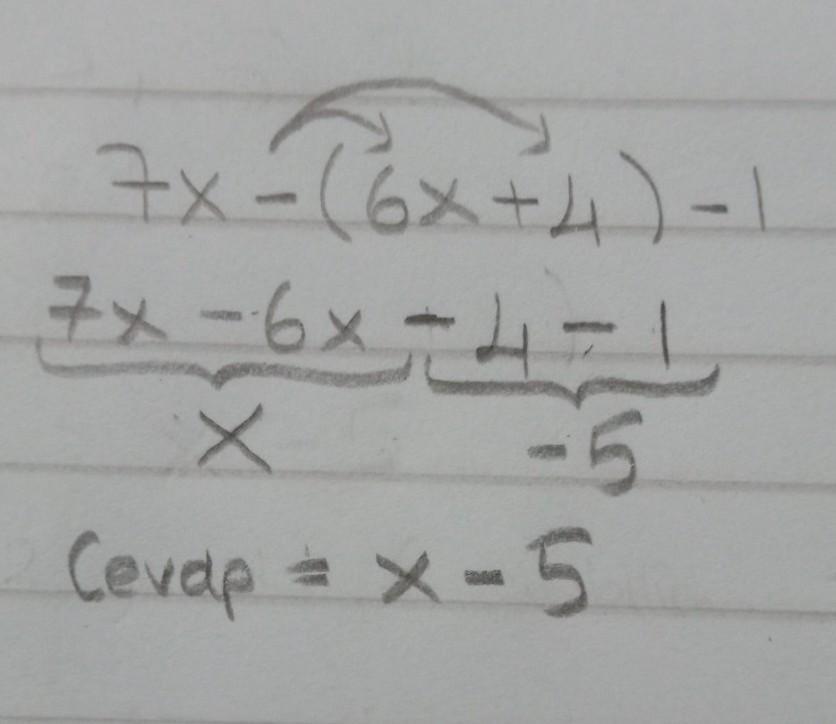 7x - (6x + 4) - 1
7x - 6x - 4 - 1
x -5
Cevap = x - 5